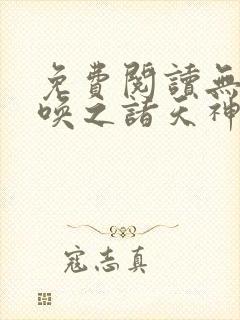 免費閱讀無
喚之諸天神
寇志真